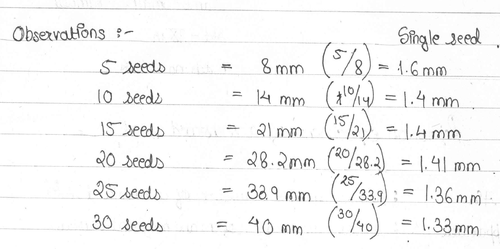 Observations :- Single seed
5 seeds = 8 mm (5/8) = 1.6 mm
10 seeds = 14 mm (10/14) = 1.4 mm
15 seeds = 21 mm (15/21) = 1.4 mm
20 seeds = 28.2 mm (20/28.2) = 1.41 mm
25 seeds = 33.9 mm (25/33.9) = 1.36 mm
30 seeds = 40 mm (30/40) = 1.33 mm